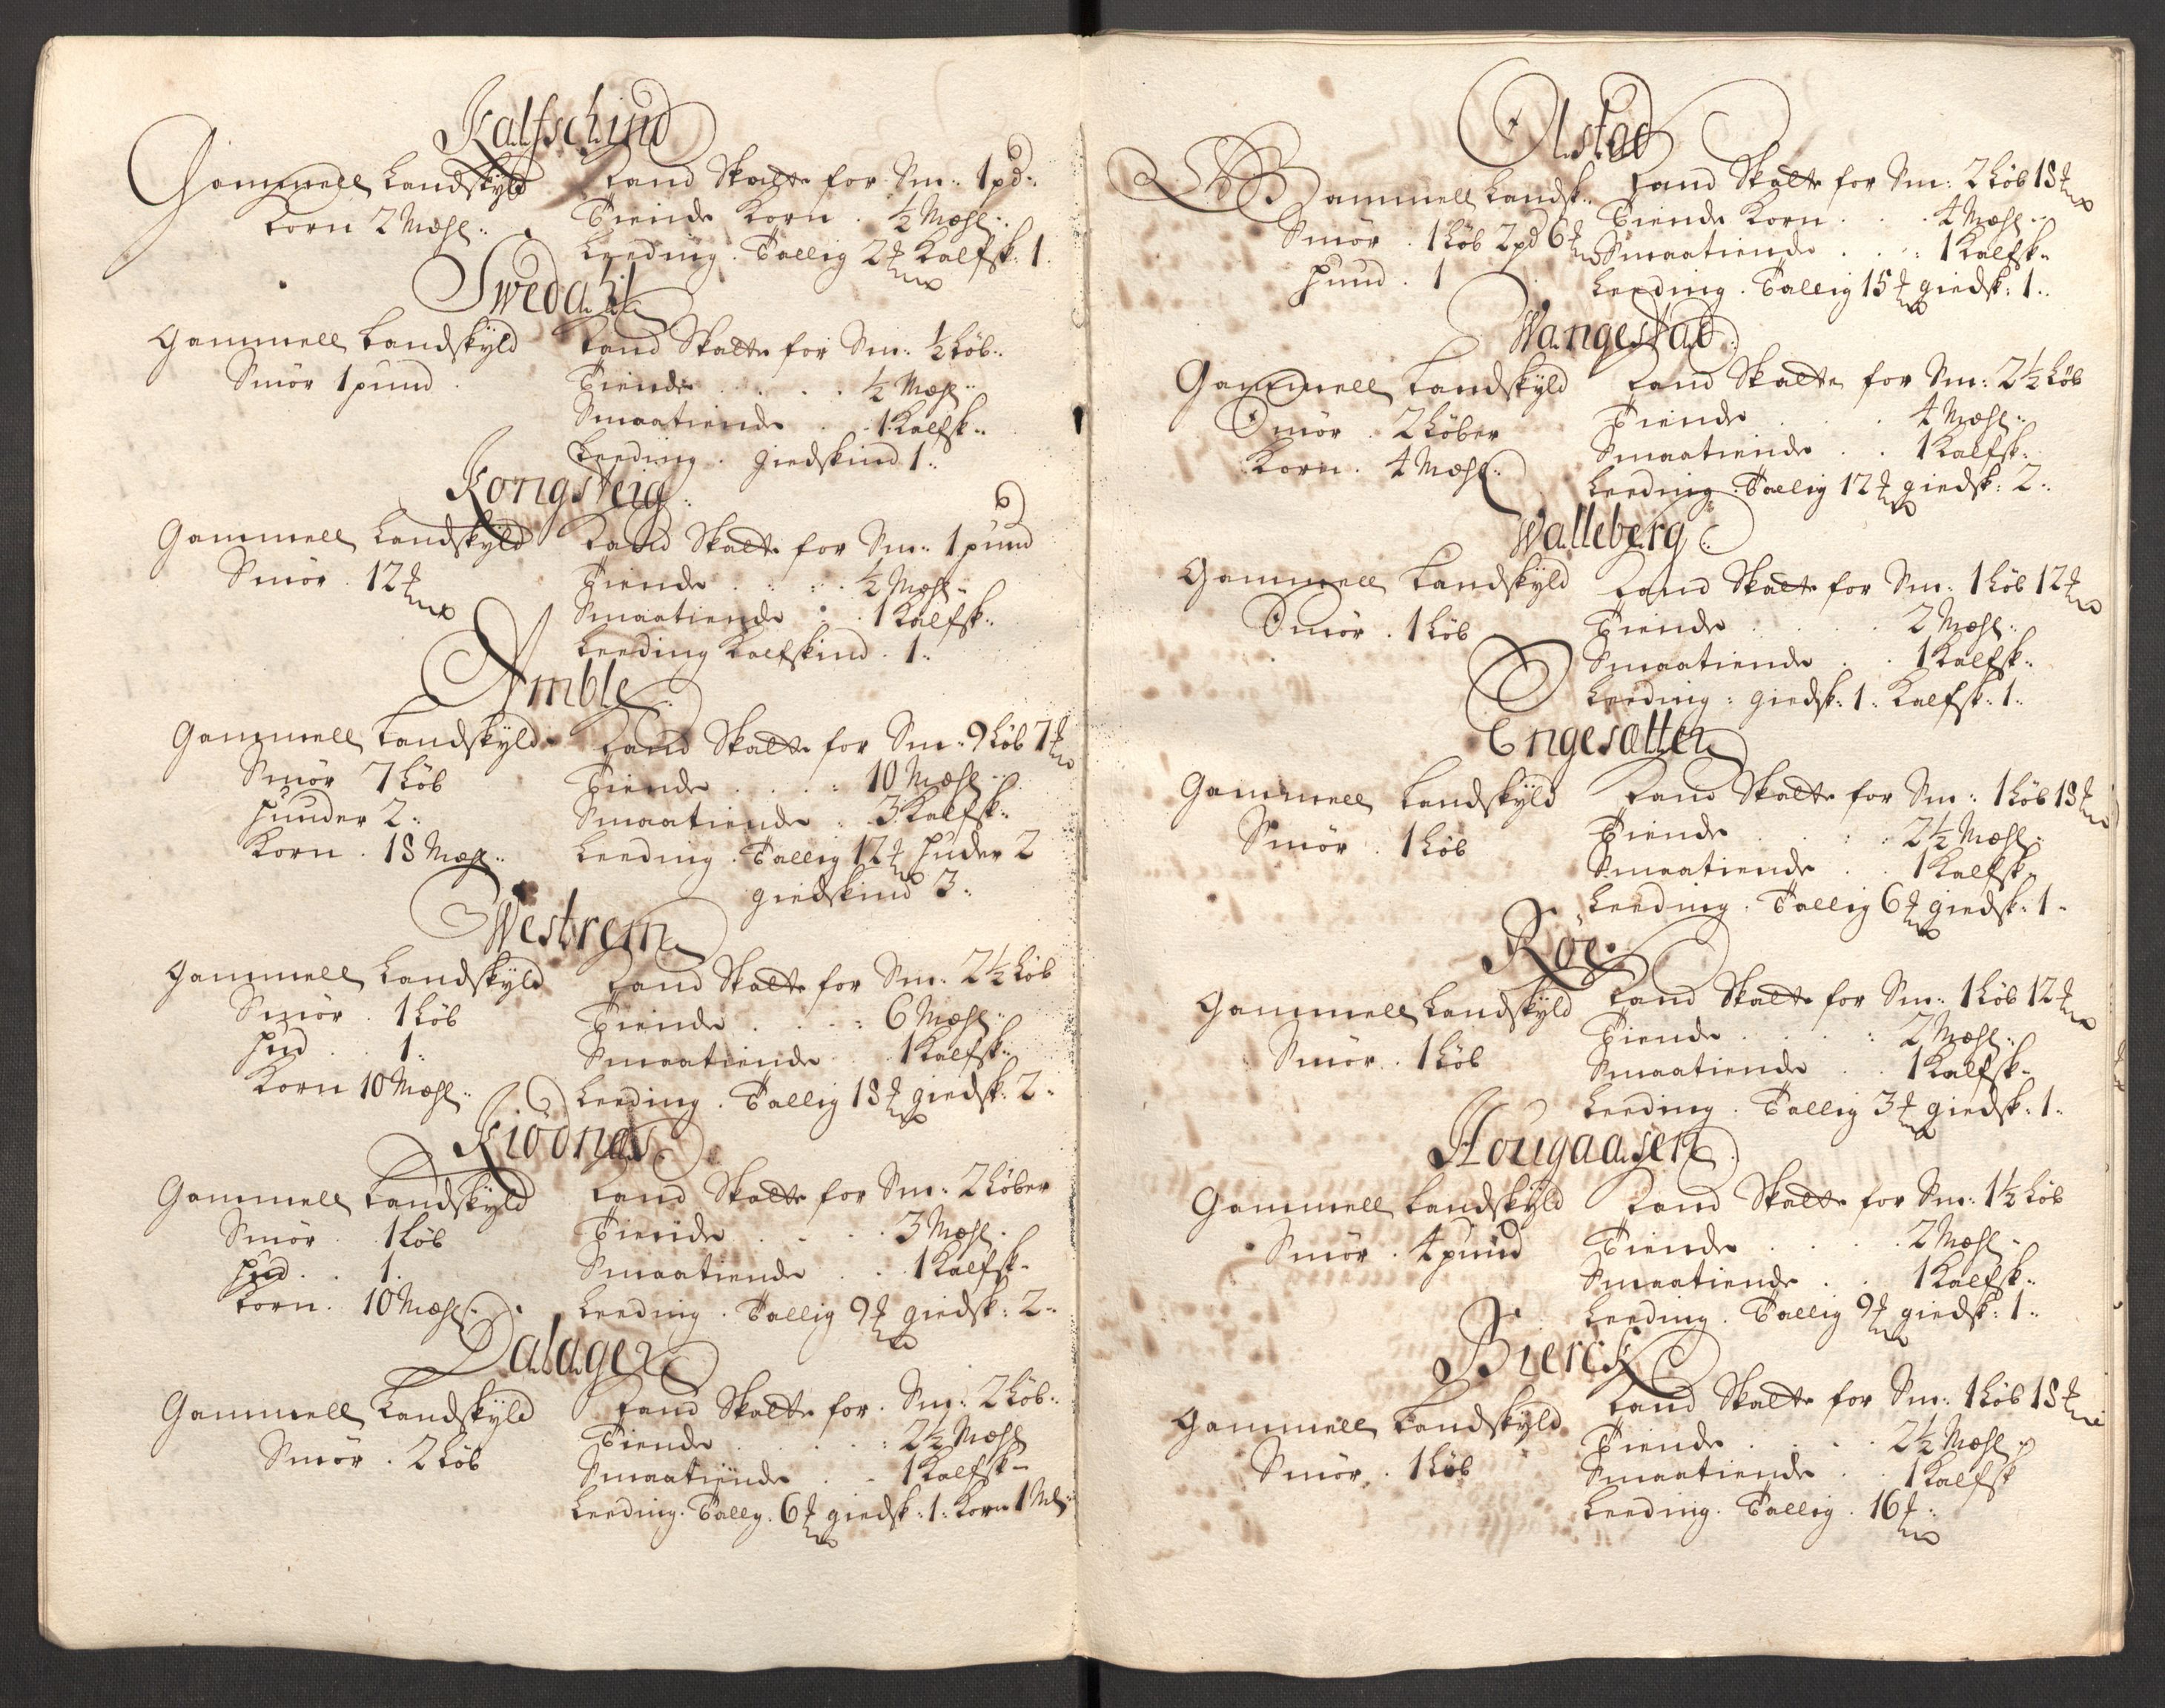 Kalfschind
Gammell Landskyld
Korn 2 Mæhl:
Land Skatt for Sm: 1 pd:
Tiende Korn . ½ Mæhl:
Leeding. Tallig 2 ℔ Kalfsk: 1.
Swedahl
Gammell Landskyld
Smör 1 pund.
Land Skatte for Sm: ½ Löb:
Tiende . . . . ½ Mæhl:
Smaatiende . . 1 Kalfsk:
Leeding . giedskind 1:
Kongsteig:
Gammell Landskyld
Smör . 12 ℔
Land Skatte for Sm: 1 pund
Tiende . . . . ½ Mæhl:
Smaatiende . . 1 Kalfsk:
Leeding Kalfskind . 1:
Amble
Gammell Landskyld
Smör 7 Löb
huuder 2:
Korn . 18 Mæhl:
Land Skatte for Sm: 9 Löb 7 ℔
Tiende . . . . 10 Mæhl:
Smaatiende . 3 Kalfsk:
Leeding . Tallig 12 ℔ huder 2
giedskind 3:
Westrem
Gammell Landskyld
Smör . 1 Löb
hud . . 1:
Korn 10 Mæhl:
Land Skatte for Sm: 2½ Löb
Tiende . . . . 6 Mæhl:
Smaatiende . . 1 Kalfsk:
Leeding . Tallig 18 ℔ giedsk: 2:
Kiödnæs
Gammell Landskyld
Smör . 1 Löb
hud . . 1.
Korn . 10 Mæhl:
Land Skatte for Sm: 2 Löber
Tiende . . . . 3 Mæhl.
Smaatiende . . 1 Kalfsk:
Leeding . Tallig 9 ℔ giedsk: 2:
Dalager
Gammell Landskyld
Smör . 2 Löb
Land Skatte for . Sm: 2 Löb:
Tiende . . . . 2½ Mæhl
Smaatiende . . 1 Kalfsk:
Leeding. Tallig. 6 ℔ giedsk: 1: Korn 1 Ml:
Olstad
Gammell Landsk:
Smör . 1 Löb 2 pd 6 ℔
huud . 1
Land Skatte for Sm: 2 Löb 18 ℔
Tiende Korn . . . 4 Mæhl:
Smaatiende . . . 1 Kalfsk:
Leeding . Tallig 15 ℔ giedsk: 1:
Wangestad:
Gammell Landskyld
Smör . 2 Löber
Korn . 4 Mæhl:
Land Skatte for Sm: 2½ Löb
Tiende . . . 4 Mæhl:
Smaatiende . . 1 Kalfsk:
Leeding . Tallig 12 ℔ giedsk: 2:
Walleberg:
Gammell Landskyld
Smör . 1 Löb
Land Skatte for Sm: 1 Löb 12 ℔
Tiende . . . . 2 Mæhl:
Smaatiende . . 1 Kalfsk:
Leeding : giedsk: 1: Kalfsk: 1:
Engesætter
Gammell Landskyld
Smör . 1 Löb
Land Skatte for Sm: 1 Löb 18 ℔
Tiende . . . . 2½ Mæhl:
Smaatiende . . 1 Kalfsk:
Leeding . Tallig 6 ℔ giedsk: 1:
Röe:
Gammell Landskyld
Smör . 1 Löb
Land Skatte for Sm: 1 Löb 12 ℔
Tiende . . . . 2 Mæhl:
Smaatiende . . 1 Kalfsk:
Leeding . Tallig 3 ℔ giedsk: 1:
Hougaasen
Gammell Landskyld
Smör . 4 pund
Land Skatte for Sm: 1½ Löb
Tiende . . . . 2 Mæhl:
Smaatiende . . 1 Kalfsk:
Leeding . Tallig 9 ℔ giedsk: 1:
Bierck
Gammell Landskyld
Smör . 1 Löb
Land Skatte for Sm: 1 Löb 18 ℔
Tiende . . . . 2½ Mæhl:
Smaatiende . . 1 Kalfsk
Leeding . Tallig . 16 ℔: